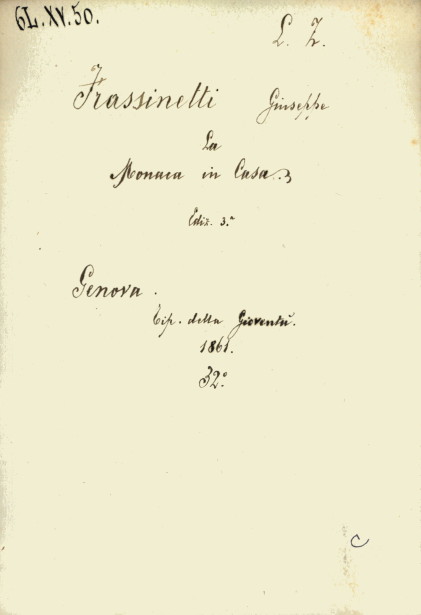 6L.XV.50.
L. Z.
Frassinetti Giuseppe
La
Monaca in Casa
Ediz. 3.ª
Genova.
Tip. della Gioventù.
1861.
32.º
C